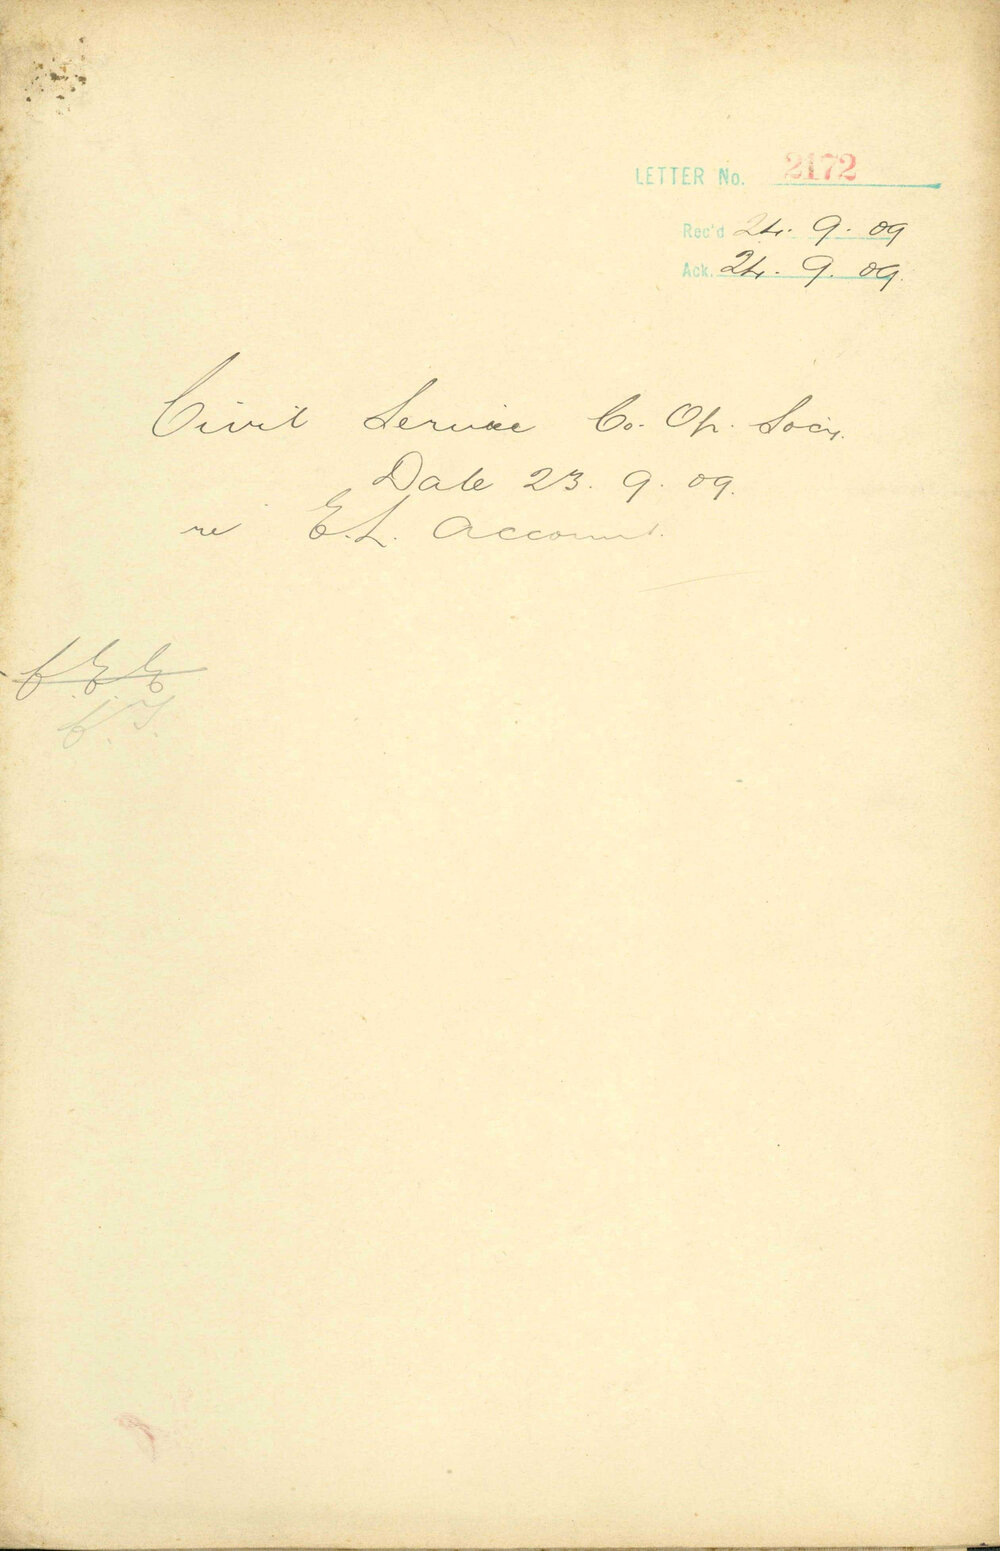 LETTER No. 2172
Rec'd 24. 9. 09
Ack. 24. 9. 09.
Civil Service Co. Op. Socy.
Date 23. 9. 09.
re E.L. Account.
C.T.